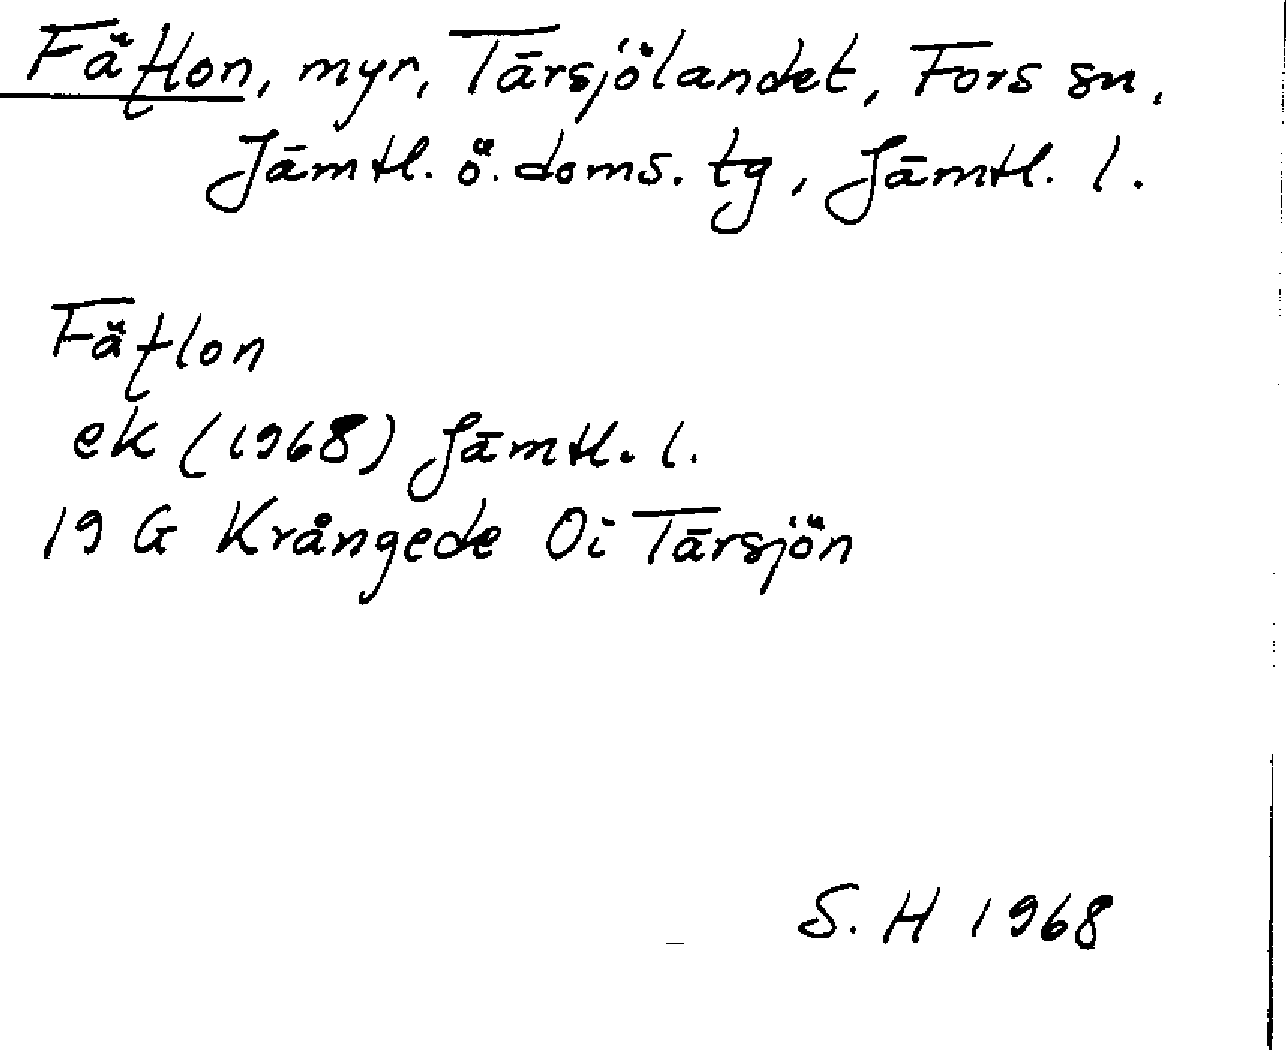 Fätlon, myr, Tärsjölandet, Fors sn,
Jämtl. ö. doms. tg, Jämtl. l.
Fätlon
ek (1968) Jämtl. l.
19 G Krångede Oi Tärsjön
S. H 1968